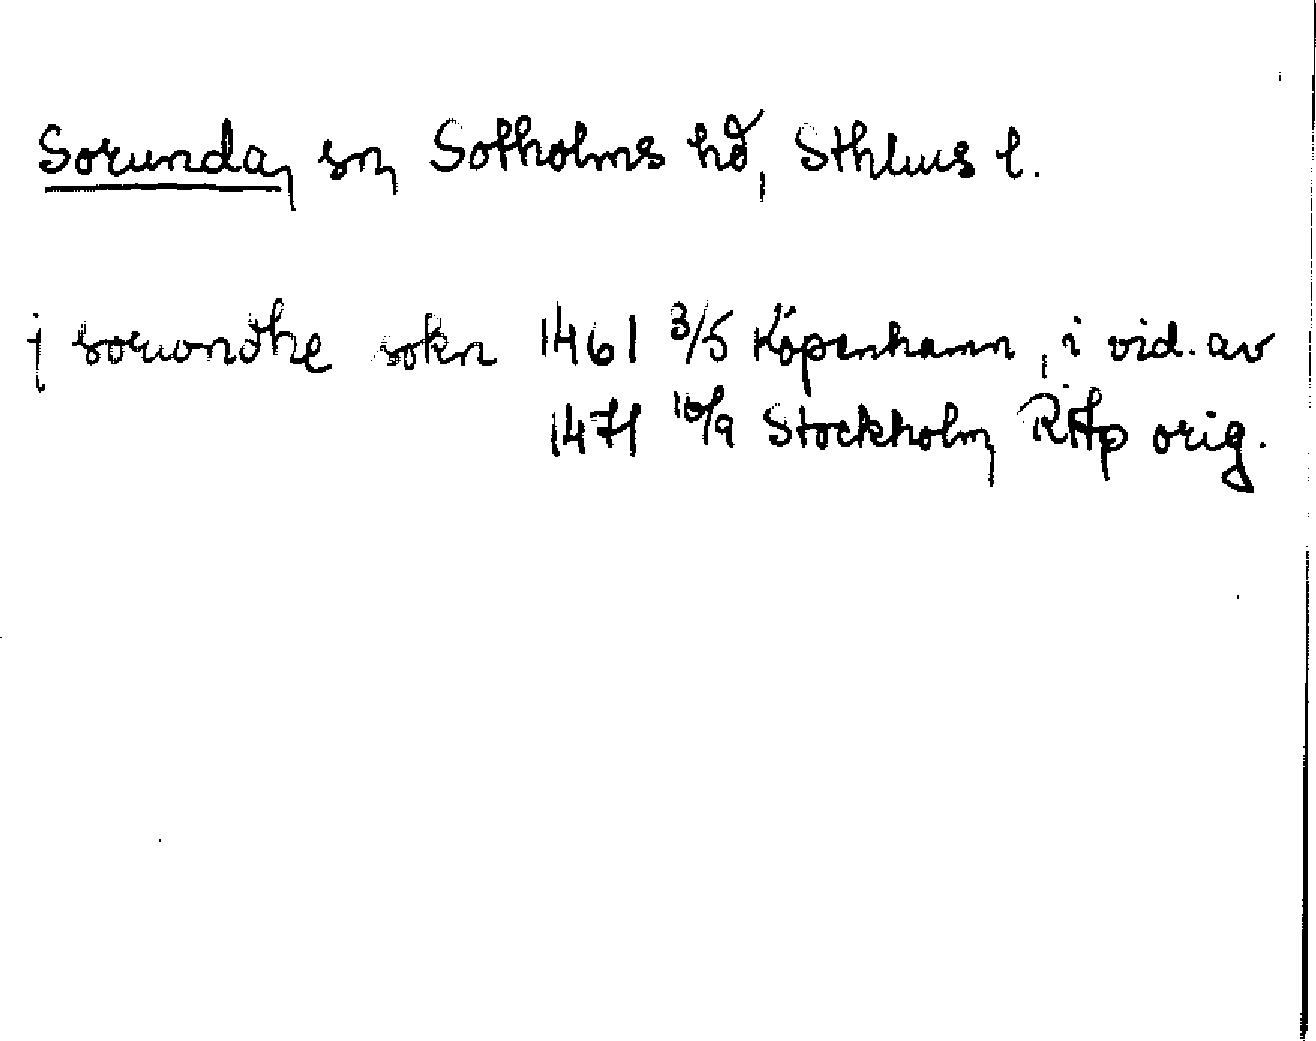 Sorunda, sn, Sotholms hd, Sthlms l.
j soruondhe sokn 1461 3/5 Köpenhamn, i vid. av
1471 16/9 Stockholm, RAp orig.